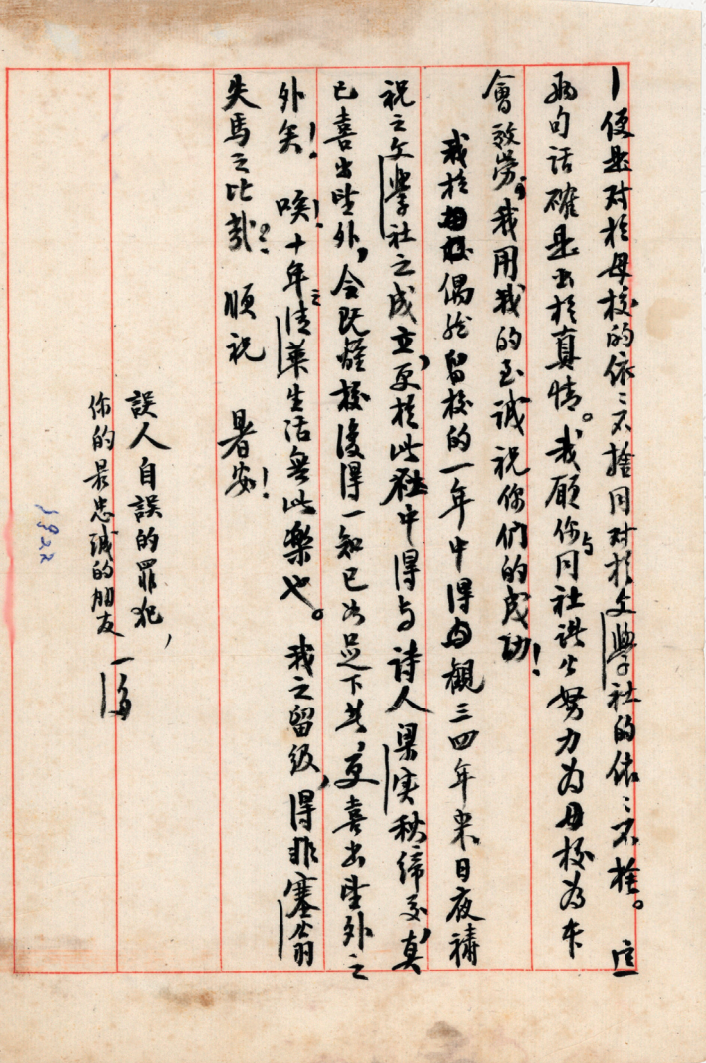 ——便是对於母校的依々不捨同对於文學社的依々不捨。這
兩句話確是出於真情。我願你与同社諸公努力為母校為本
會效勞。我用我的至誠祝你們的成功！
我於母校偶然留校的一年中得与觀三四年來日夜禱
祝之文學社之成立，更於此社中得与詩人梁实秋締交，真
已喜出望外，今既離校後得一知己如足下其，更喜出望外之
外矣！唉！十年之清華生活無此樂也。我之留級，得非塞翁
失馬之比哉？順祝 暑安！
誤人自誤的罪犯，
你的最忠誠的朋友 一多
1922